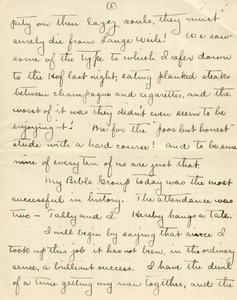 (5)
pity on their lazy souls, they must
surely die from Lange Weile! We saw
some of the type to which I refer down
to the Hof last night, eating planked steaks
between champagne and cigarettes, and the
worst of it was they didn't even seem to be
enjoying it! Me for the "poor but honest"
stude with a hard course! and to be sure
nine of every ten of us are just that.
My Bible Group today was the most
successful in history. The attendance was
two - Talley and I. Hereby hangs a tale.
I will begin by saying that since I
took up this job it has not been, in the ordinary
sense, a brilliant success. I have the devil
of a time getting my men together, and the